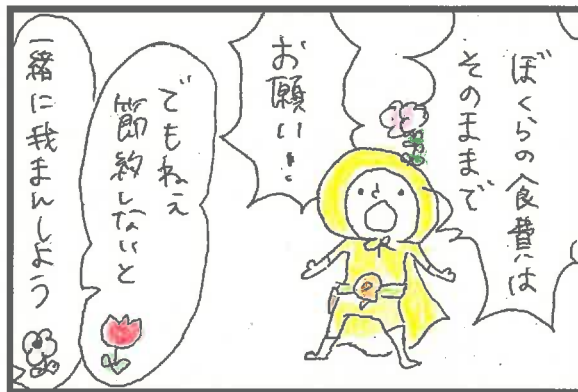 ぼくらの食費は
そのままで
お願い…
でもねえ
節約しないと
一緒に我まんしよう